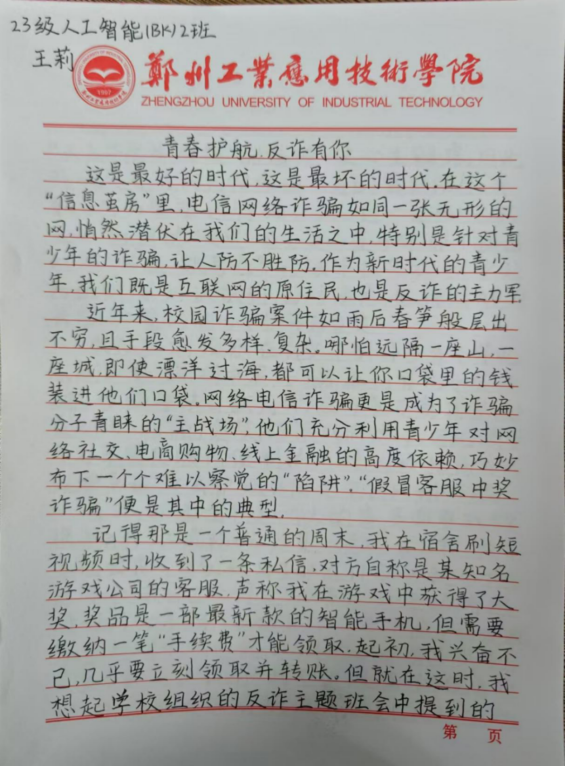 23级人工智能(BK)2班
王莉
鄭州工業應用技術學院
ZHENGZHOU UNIVERSITY OF INDUSTRIAL TECHNOLOGY
青春护航,反诈有你
这是最好的时代,这是最坏的时代,在这个
“信息茧房”里,电信网络诈骗如同一张无形的
网,悄然潜伏在我们的生活之中,特别是针对青
少年的诈骗,让人防不胜防,作为新时代的青少
年,我们既是互联网的原住民,也是反诈的主力军
近年来,校园诈骗案件如雨后春笋般层出
不穷,且手段愈发多样、复杂。哪怕远隔一座山,一
座城,即使漂洋过海,都可以让你口袋里的钱
装进他们口袋,网络电信诈骗更是成为了诈骗
分子青睐的“主战场”,他们充分利用青少年对网
络社交、电商购物、线上金融的高度依赖,巧妙
布下一个个难以察觉的“陷阱”,“假冒客服中奖
诈骗”便是其中的典型.
记得那是一个普通的周末,我在宿舍刷短
视频时,收到了一条私信,对方自称是某知名
游戏公司的客服,声称我在游戏中获得了大
奖,奖品是一部最新款的智能手机,但需要
缴纳一笔“手续费”才能领取.起初,我兴奋不
已,几乎要立刻领取并转账。但就在这时,我
想起学校组织的反诈主题班会中提到的
第 页